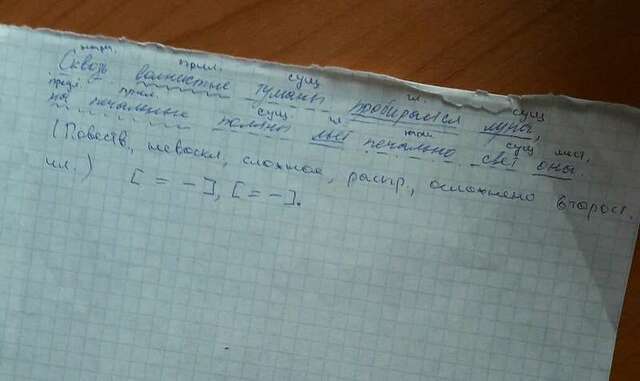 нареч. прил. сущ гл. сущ
Сквозь волнистые туманы пробирается луна,
предл. прил. сущ. гл нар. сущ мест.
на печальные поляны льёт печально свет она.
(Повеств., невоскл, сложное, распр., осложнено второст.
чл.) [= –], [= –].